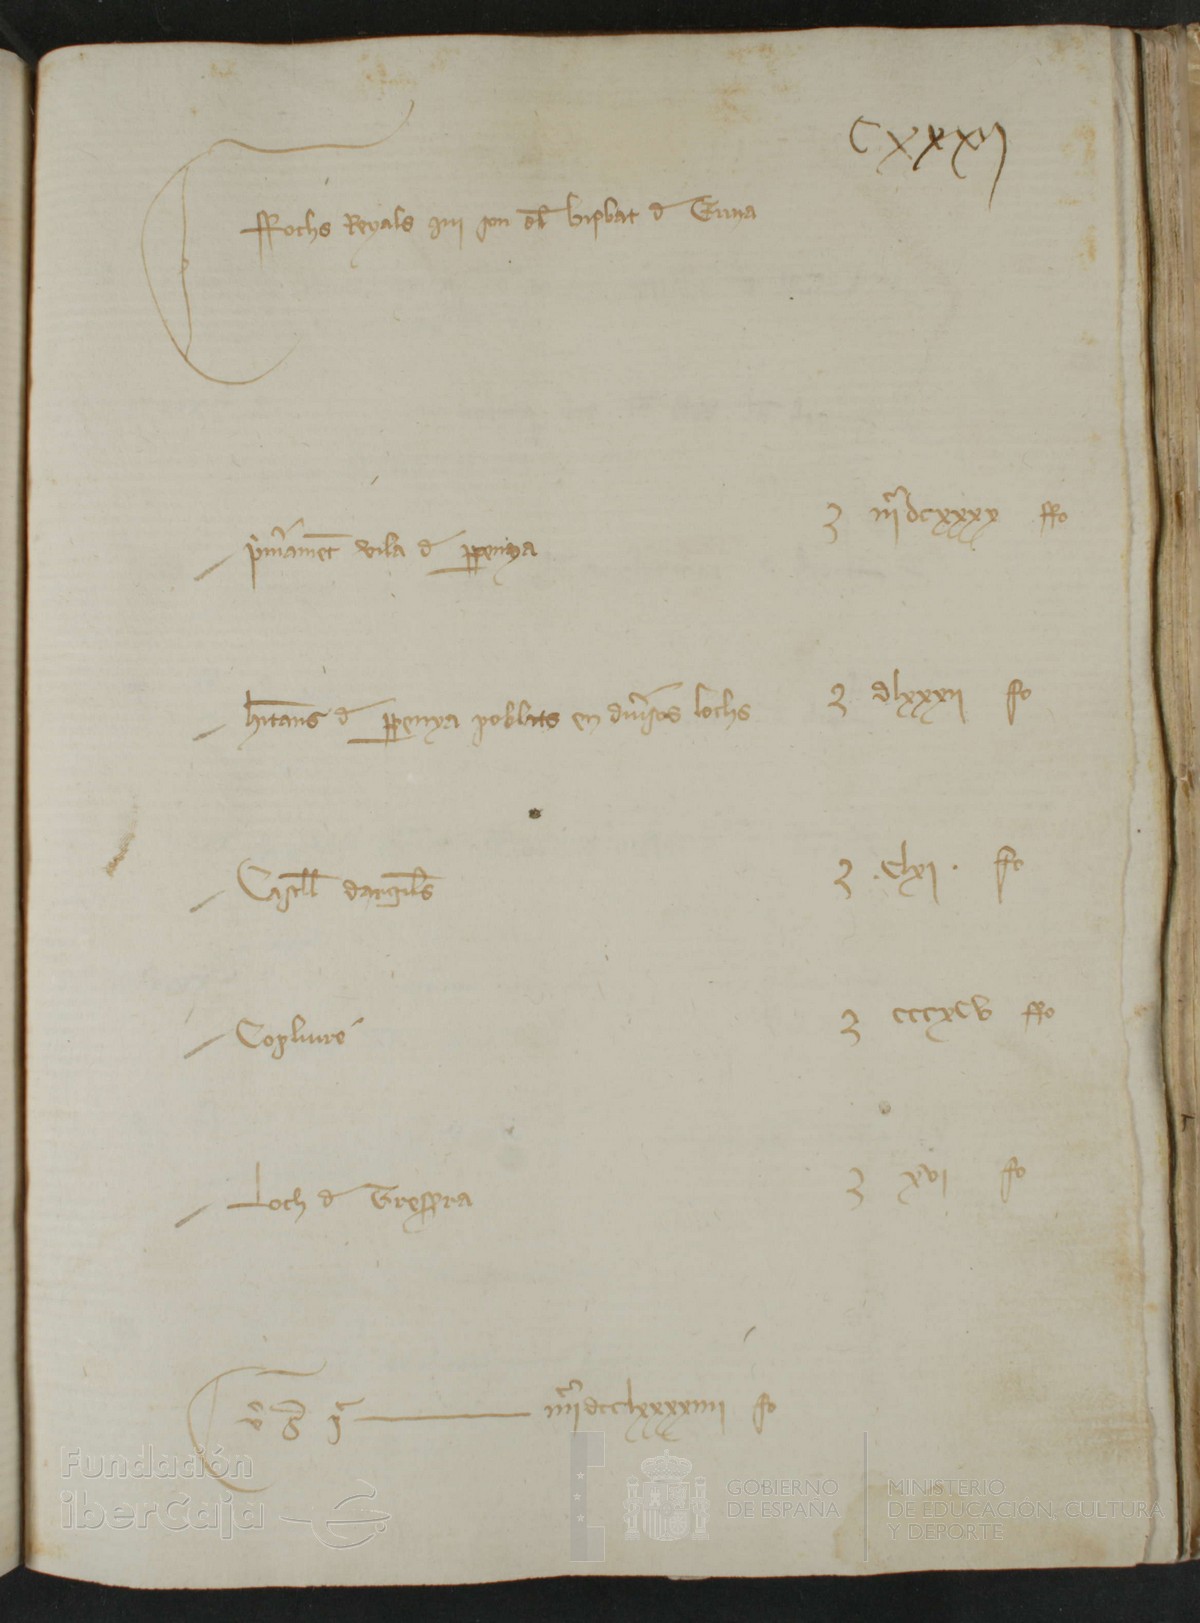 CXXXII
Ffochs Reyals qui son dl bispbat d Euna
p'mament vila d ppenya ʒ iij̅dcxxxx ffo
hitans d ppenya poblats en diu'sos lochs ʒ dlxxxii fo
Castll dargils ʒ .clxi. fo
Copliure ʒ cccxcv ffo
Loch d Tresserra ʒ xvi fo
iiij̅dcclxxxxiiii fo
Fundación
iberCaja
GOBIERNO
DE ESPAÑA
MINISTERIO
DE EDUCACIÓN, CULTURA
Y DEPORTE